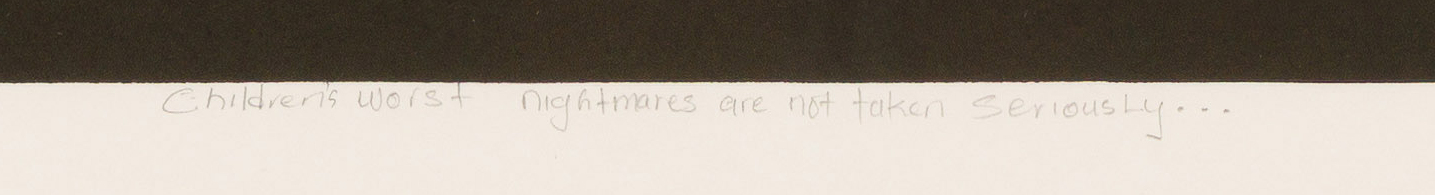 Children's worst nightmares are not taken seriously...